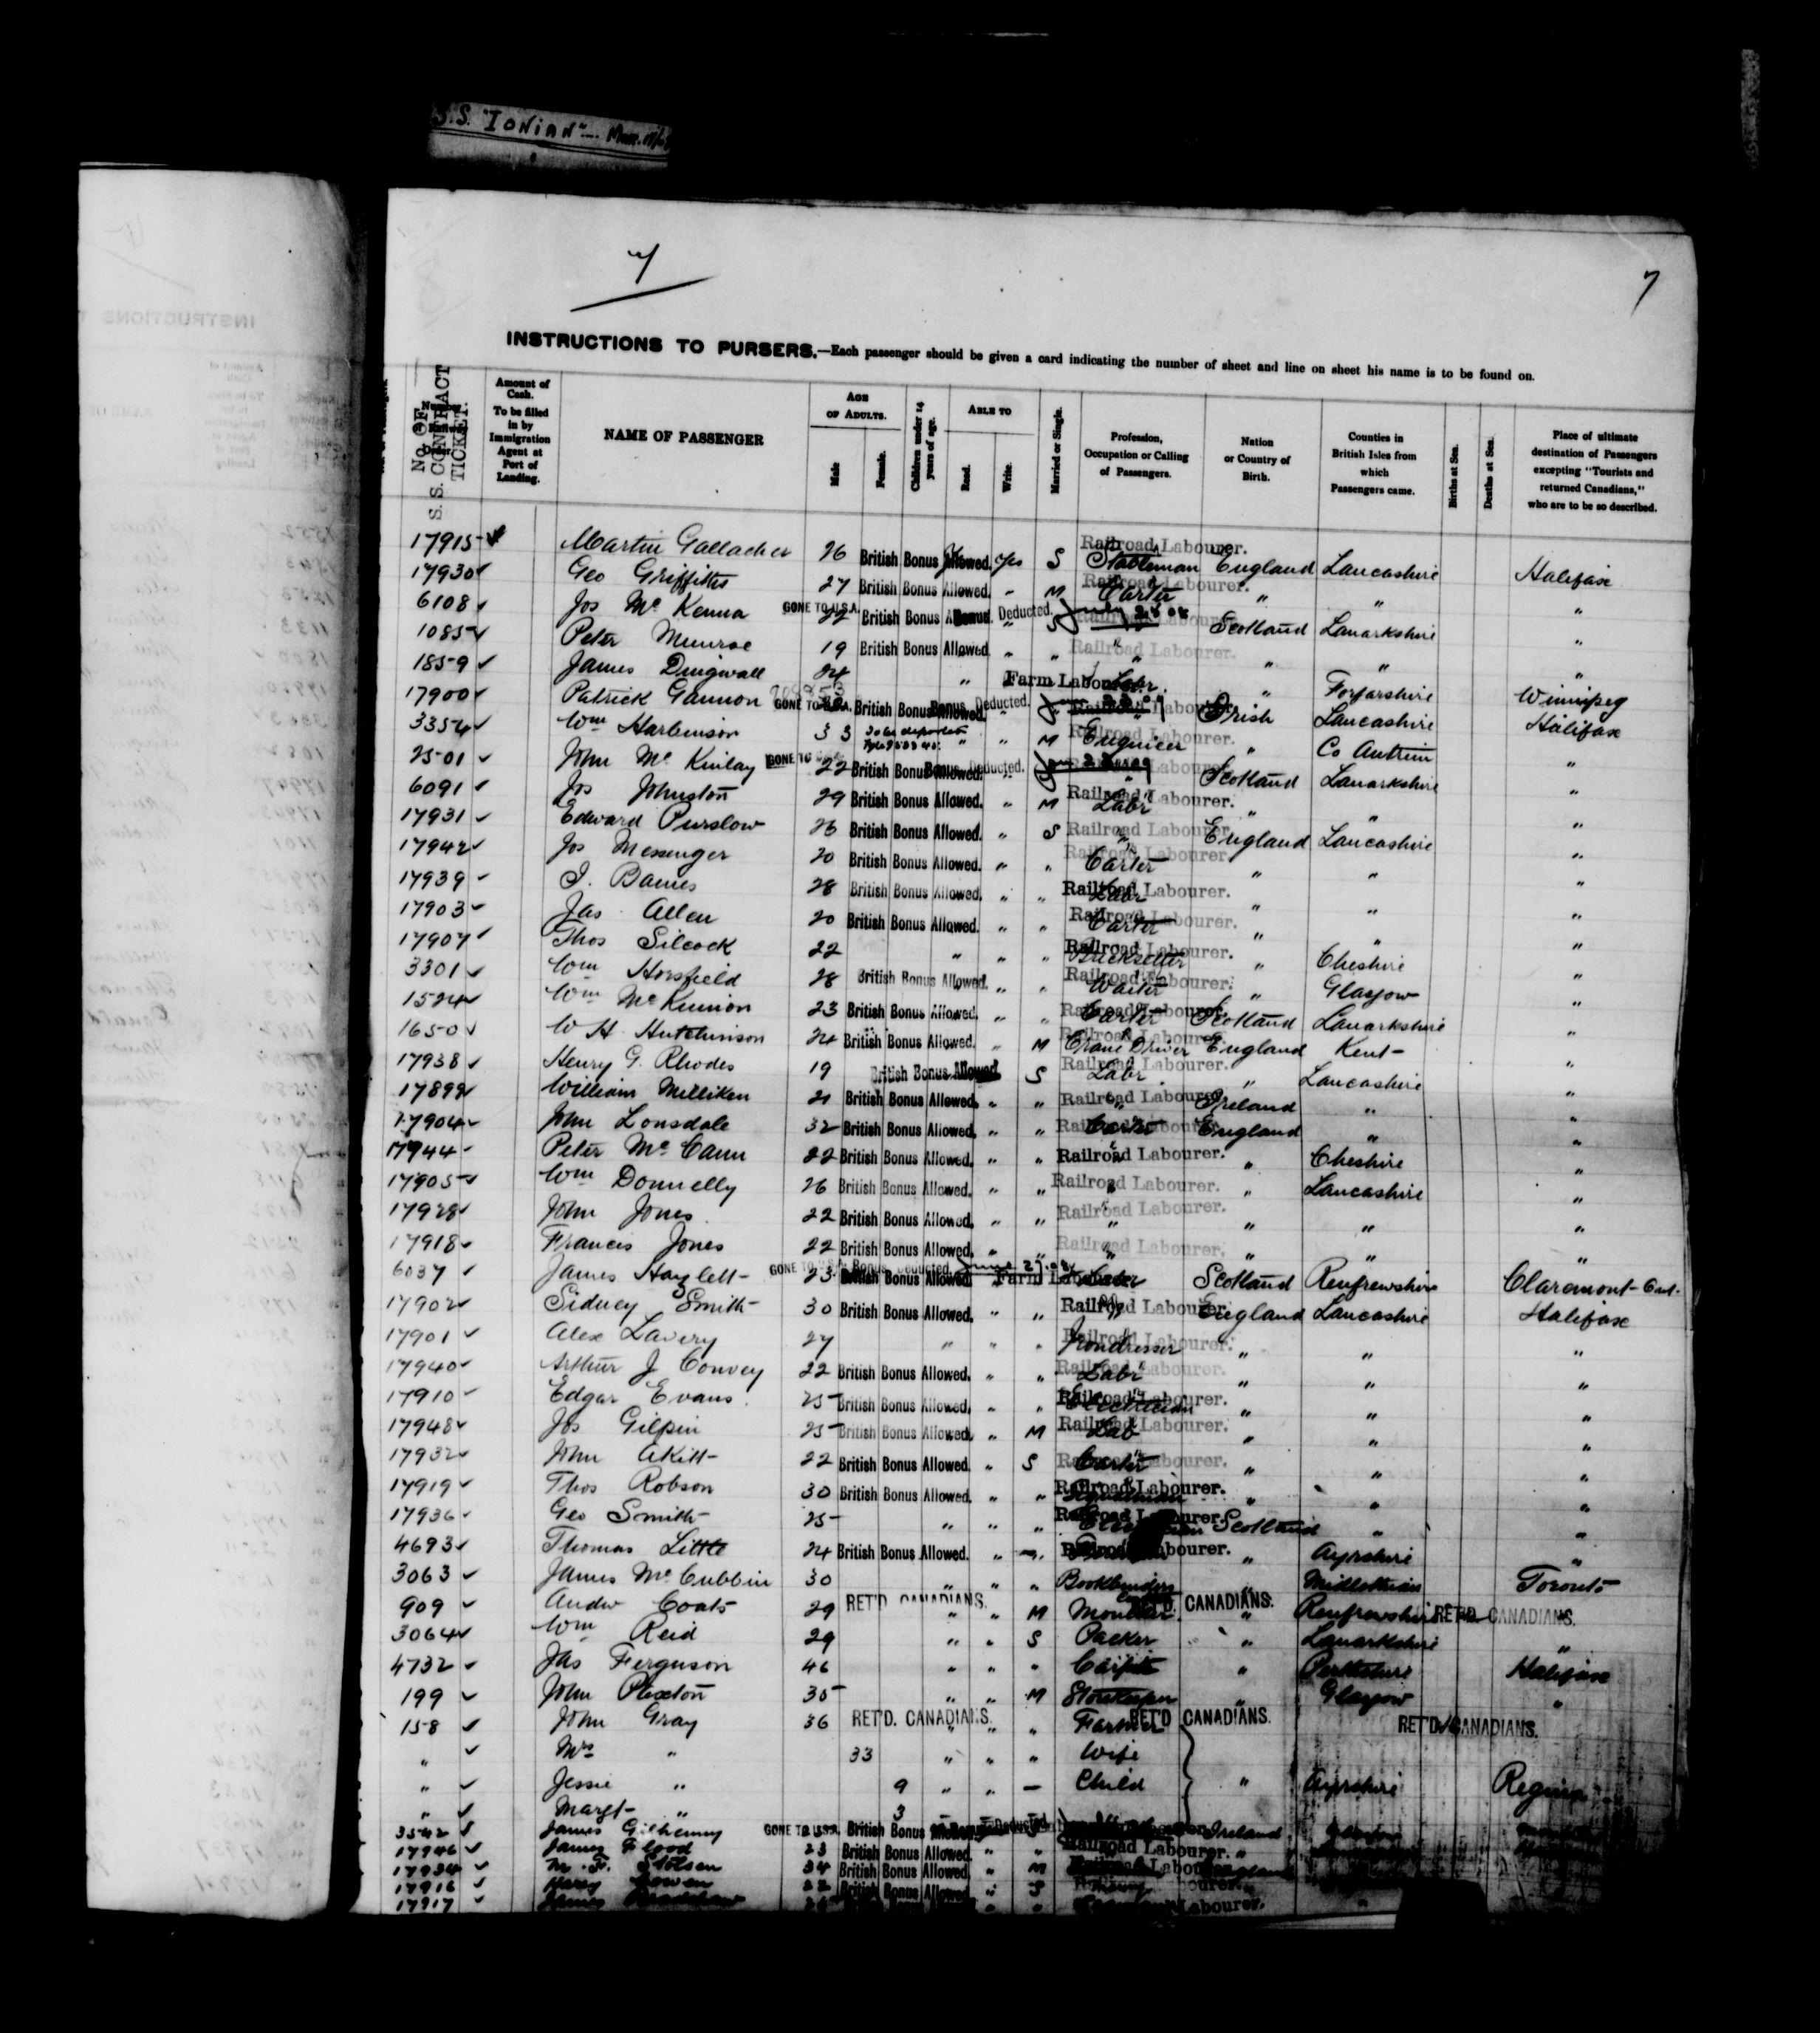 S.S. "IONIAN"
7
7
INSTRUCTIONS TO PURSERS.—Each passenger should be given a card indicating the number of sheet and line on sheet his name is to be found on.
No. OF S. S. CONTRACT TICKET. Amount of Cash. To be filled in by Immigration Agent at Port of Landing. NAME OF PASSENGER AGE OF ADULTS. Male Female. Children under 14 years of age. ABLE TO Read. Write. Married or Single. Profession, Occupation or Calling of Passengers. Nation or Country of Birth. Counties in British Isles from which Passengers came. Births at Sea. Deaths at Sea. Place of ultimate destination of Passengers excepting "Tourists and returned Canadians," who are to be so described.
17915 Martin Gallacher 26 British Bonus Allowed. Yes S Railroad Labourer. Stableman England Lancashire Halifax
17930 Geo Griffiths 27 British Bonus Allowed. " M Railroad Labourer. Carter " " "
6108 Jos McKenna GONE TO U.S.A. 22 British Bonus Deducted. S Scotland Lanarkshire "
1085 Peter Munroe 19 British Bonus Allowed. " " Railroad Labourer. " " " "
1859 James Dingwall 24 " Farm Labourer. Labr. " Forfarshire Winnipeg
17900 Patrick Gannon GONE TO U.S.A. British Bonus Allowed. Bonus Deducted. " Railroad Labourer. Irish Lancashire Halifax
3354 Wm Harbinson 33 " " M Railroad Labourer. Engineer " Co Antrim "
2501 John McKinlay GONE TO 22 British Bonus Allowed. Bonus Deducted. Scotland Lanarkshire "
6091 Jos Johnston 29 British Bonus Allowed. " M Railroad Labourer. Labr " " "
17931 Edward Purslow 26 British Bonus Allowed. " S Railroad Labourer. " England Lancashire "
17942 Jos Messenger 20 British Bonus Allowed. " " Railroad Labourer. Carter " " "
17939 J. Barnes 28 British Bonus Allowed. " " Railroad Labourer. Labr " " "
17903 Jas Allen 20 British Bonus Allowed. " " Railroad Labourer. Carter " " "
17907 Thos Silcock 22 " " " Railroad Labourer. Bricksetter " Cheshire "
3301 Wm Horsfield 28 British Bonus Allowed. " " Railroad Labourer. Waiter " Glasgow "
1524 Wm McKinnon 23 British Bonus Allowed. " " Railroad Labourer. Carter Scotland Lanarkshire "
1650 W H Hutchinson 24 British Bonus Allowed. " M Railroad Labourer. Crane Driver England Kent "
17938 Henry G. Rhodes 19 British Bonus Allowed S Railroad Labourer. Labr. " Lancashire "
17899 William Milliken 21 British Bonus Allowed. " " Railroad Labourer. " Ireland " "
17904 John Lonsdale 32 British Bonus Allowed. " " Railroad Labourer. Carter England " "
17944 Peter McCann 22 British Bonus Allowed. " " Railroad Labourer. " " Cheshire "
17905 Wm Donnelly 26 British Bonus Allowed. " " Railroad Labourer. " " Lancashire "
17928 John Jones 22 British Bonus Allowed. " " Railroad Labourer. " " " "
17918 Francis Jones 22 British Bonus Allowed. " " Railroad Labourer. " " " "
6037 James Hazlett GONE TO U.S.A. Bonus Deducted. 23 British Bonus Allowed Farm Labourer Labr Scotland Renfrewshire Claremont Ont.
17902 Sidney Smith 30 British Bonus Allowed. " " Railroad Labourer. England Lancashire Halifax
17901 Alex Lavery 27 " " " Railroad Labourer. Irondresser " " "
17940 Arthur J Convey 22 British Bonus Allowed. " " Railroad Labourer. Labr " " "
17910 Edgar Evans 25 British Bonus Allowed. " " Railroad Labourer. Electrician " " "
17948 Jos Gilpin 25 British Bonus Allowed. " M Railroad Labourer. Lab " " "
17932 John Akitt 22 British Bonus Allowed. " S Railroad Labourer. Carter " " "
17919 Thos Robson 30 British Bonus Allowed. " " Railroad Labourer. " " "
17936 Geo Smith 25 " " " Railroad Labourer. Scotland " "
4693 Thomas Little 24 British Bonus Allowed. " Railroad Labourer. " Ayrshire "
3063 James McCubbin 30 " " " Bookbinder " Midlothian Toronto
909 Andw Coats 29 RET'D. CANADIANS. " " M Moulder RET'D. CANADIANS. " Renfrewshire RET'D. CANADIANS. "
3064 Wm Reid 29 " " S Packer " Lanarkshire "
4732 Jas Ferguson 46 " " " " Perthshire Halifax
199 John Plexton 35 " " M Storekeeper " Glasgow "
158 John Gray 36 RET'D. CANADIANS. " " " Farmer RET'D CANADIANS. RET'D CANADIANS.
" Mrs " 33 " " " Wife
" Jessie " 9 " " — Child " Ayrshire Regina
" Margt " 3
3542 James Gilhenny GONE TO U.S.A. British Bonus Deducted Ireland
17946 James Flood 23 British Bonus Allowed. " " Railroad Labourer. "
17934 34 British Bonus Allowed. " M Labourer England
17916 Harry Bowen 22 British Bonus Allowed. " S
17917 James Bradshaw British Bonus Allowed. " " Labourer.